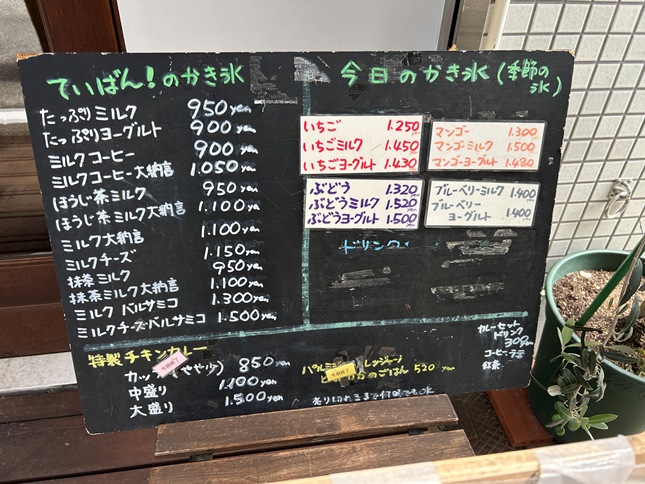 ていばん!のかき氷
たっぷりミルク 950yen
たっぷりヨーグルト 900yen
ミルクコーヒー 900yen
ミルクコーヒー大納言 1.050yen
ほうじ茶ミルク 950yen
ほうじ茶ミルク大納言 1.100yen
ミルク大納言 1.100yen
ミルクチーズ 1.150yen
抹茶ミルク 950yen
抹茶ミルク大納言 1.100yen
ミルクバルサミコ 1.300yen
ミルクチーズバルサミコ 1.500yen
今日のかき氷(季節の氷)
いちご 1.250
いちごミルク 1.450
いちごヨーグルト 1.430
マンゴー 1.300
マンゴーミルク 1.500
マンゴーヨーグルト 1.480
ぶどう 1.320
ぶどうミルク 1.520
ぶどうヨーグルト 1.500
ブルーベリーミルク 1.400
ブルーベリー
ヨーグルト 1.400
ドリンク
特製チキンカレー
850yen
中盛り 1.100yen
大盛り 1.500yen
今期終了
今期終了
のごはん 520yen
売り切れるまで何時でもOK
カレーセット
ドリンク
300yen
コーヒー
紅茶